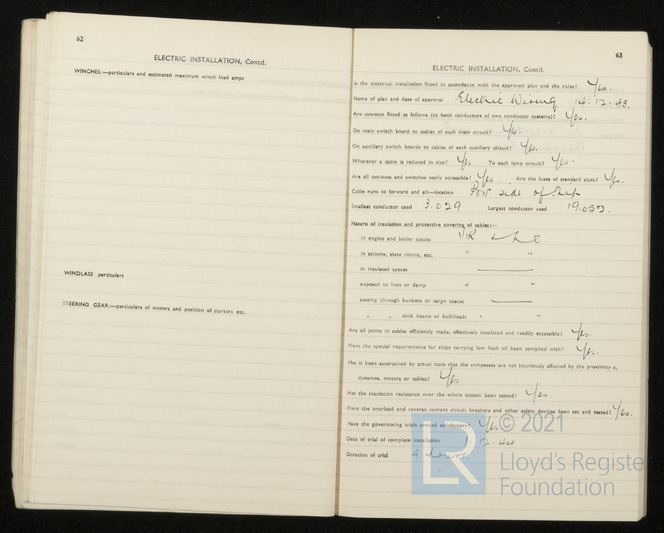 62
ELECTRIC INSTALLATION, Contd.
WINCHES:—particulars and estimated maximum winch load amps
WINDLASS particulars
STEERING GEAR:—particulars of motors and position of starters etc.
63
ELECTRIC INSTALLATION, Contd.
Is the electrical installation fitted in accordance with the approved plan and the rules? Yes.
Name of plan and date of approval Electric Wiring 14.12.43.
Are cut-outs fitted as follows (to both conductors of two conductor systems)? Yes.
On main switch board to cables of each main circuit? Yes.
On auxiliary switch boards to cables of each auxiliary circuit? Yes.
Wherever a cable is reduced in size? Yes To each lamp circuit? Yes.
Are all cut-outs and switches easily accessible? Yes. Are the fuses of standard sizes? Yes.
Cable runs to forward and aft—location Port side of ship
Smallest conductor used 3.029 Largest conductor used 19.052.
Nature of insulation and protective covering of cables:—
in engine and boiler spaces VIR
in saloons, state rooms, etc. " "
in insulated spaces ———
exposed to heat or damp " "
passing through bunkers or cargo spaces ———
" " deck beams or bulkheads " "
Are all joints in cables efficiently made, effectively insulated and readily accessible? Yes.
Have the special requirements for ships carrying low flash oil been complied with? Yes.
Has it been ascertained by actual tests that the compasses are not injuriously affected by the proximity of
dynamos, motors or cables? Yes.
Has the insulation resistance over the whole system been tested? Yes.
Have the overload and reverse current circuit breakers and other safety devices been set and tested? Yes.
Have the governoring trials proved satisfactory? Yes
Date of trial of complete installation 12.44
Duration of trial 4 hours.
© 2021
LR
Lloyd's Register
Foundation